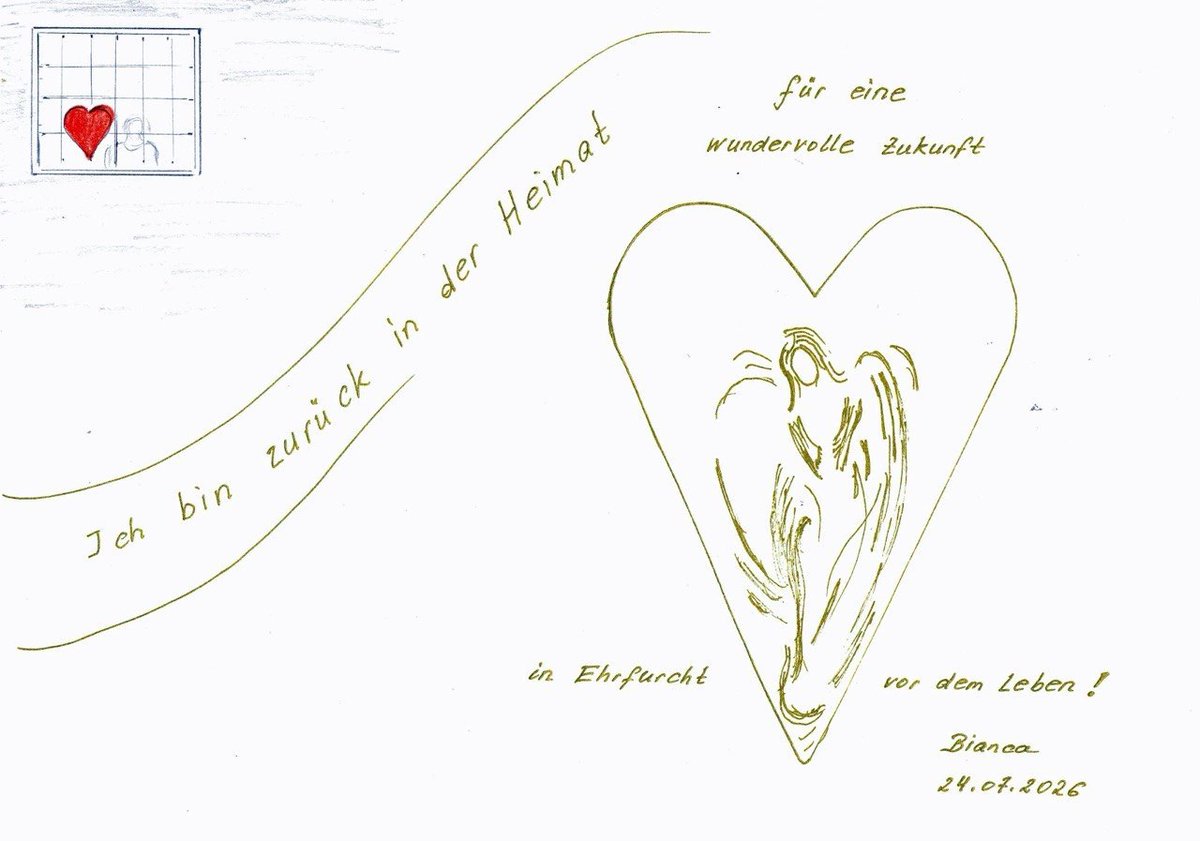 für eine
wundervolle Zukunft
Ich bin zurück in der Heimat
in Ehrfurcht vor dem Leben!
Bianca
24.07.2026